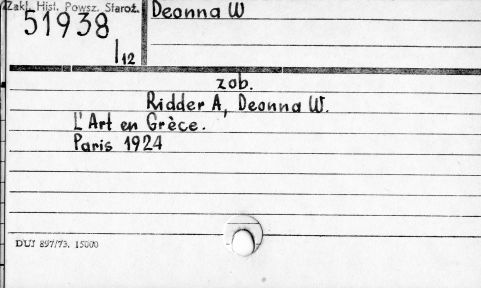 Zakł. Hist. Powsz. Staroż.
51938
12
Deonna W
zob.
Ridder A, Deonna W.
L'Art en Grèce.
Paris 1924
DUJ 897/73. 15000